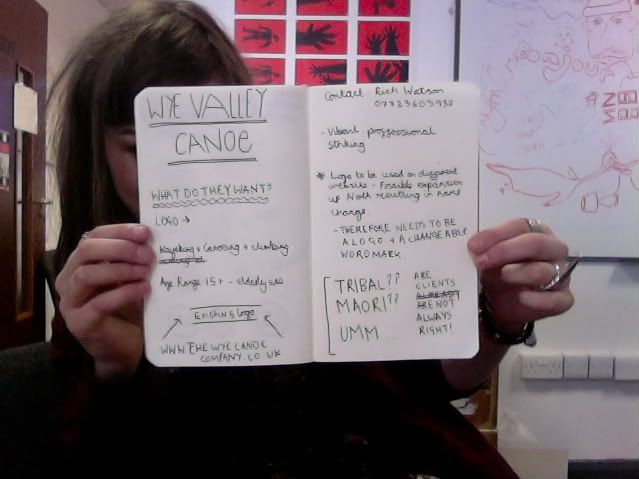 WYE VALLEY
CANOE
WHAT DO THEY WANT?
LOGO →
Kayaking + Canoeing + climbing
Age Range 15+ - elderly
Existing logo
WWW.THEWYECANOE
COMPANY.CO.UK
Contact Rich Watson
- Vibrant proffersional
striking
* Logo to be used on different
website - Possible expansion
up North resulting in name
change
- THEREFORE NEEDS TO BE
A LOGO + A CHANGEABLE
WORD MARK
TRIBAL??
MAORI??
UMM
ARE
CLIENTS
ARE NOT
ALWAYS
RIGHT!